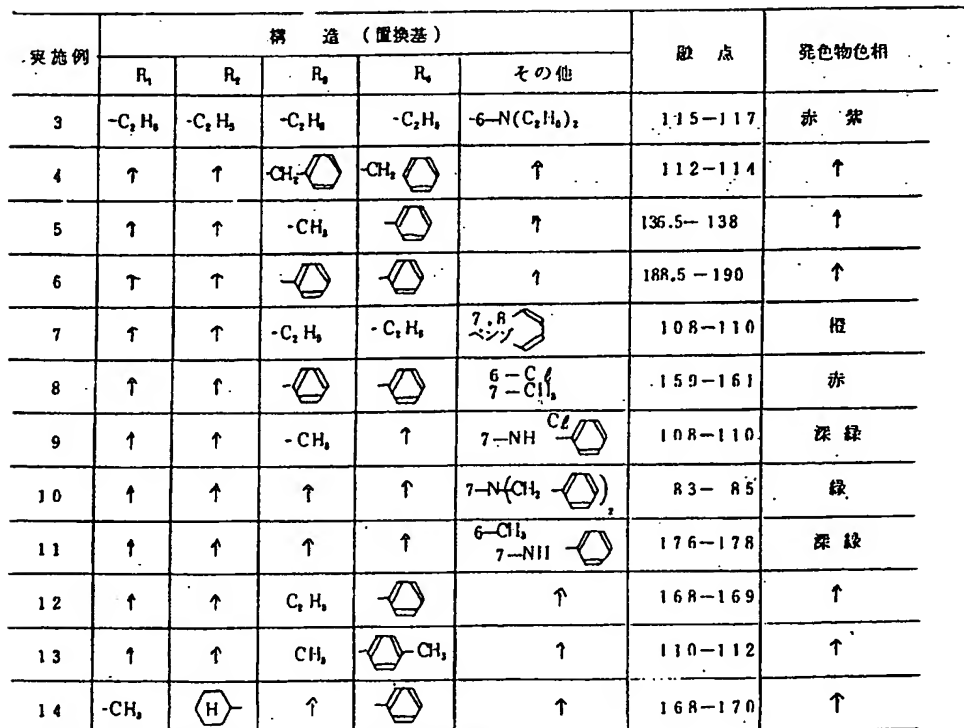 実施例 構 造 (置換基) 融 点 発色物色相
R₁ R₂ R₃ R₄ その他
3 -C₂H₅ -C₂H₅ -C₂H₅ -C₂H₅ -6-N(C₂H₅)₂ 115-117 赤 紫
4 ↑ ↑ -CH₂- -CH₂ ↑ 112-114 ↑
5 ↑ ↑ -CH₃ ↑ 136.5-138 ↑
6 ↑ ↑ ↑ 188.5-190 ↑
7 ↑ ↑ -C₂H₅ -C₂H₅ 7,8 ベンゾ 108-110 橙
8 ↑ ↑ 6-Cl 7-CH₃ 159-161 赤
9 ↑ ↑ -CH₃ ↑ 7-NH Cl 108-110 深緑
10 ↑ ↑ ↑ ↑ 7-N(CH₂- )₂ 83-85 緑
11 ↑ ↑ ↑ ↑ 6-CH₃ 7-NH 176-178 深緑
12 ↑ ↑ C₂H₅ ↑ 168-169 ↑
13 ↑ ↑ CH₃ -CH₃ ↑ 110-112 ↑
14 -CH₃ H ↑ ↑ 168-170 ↑